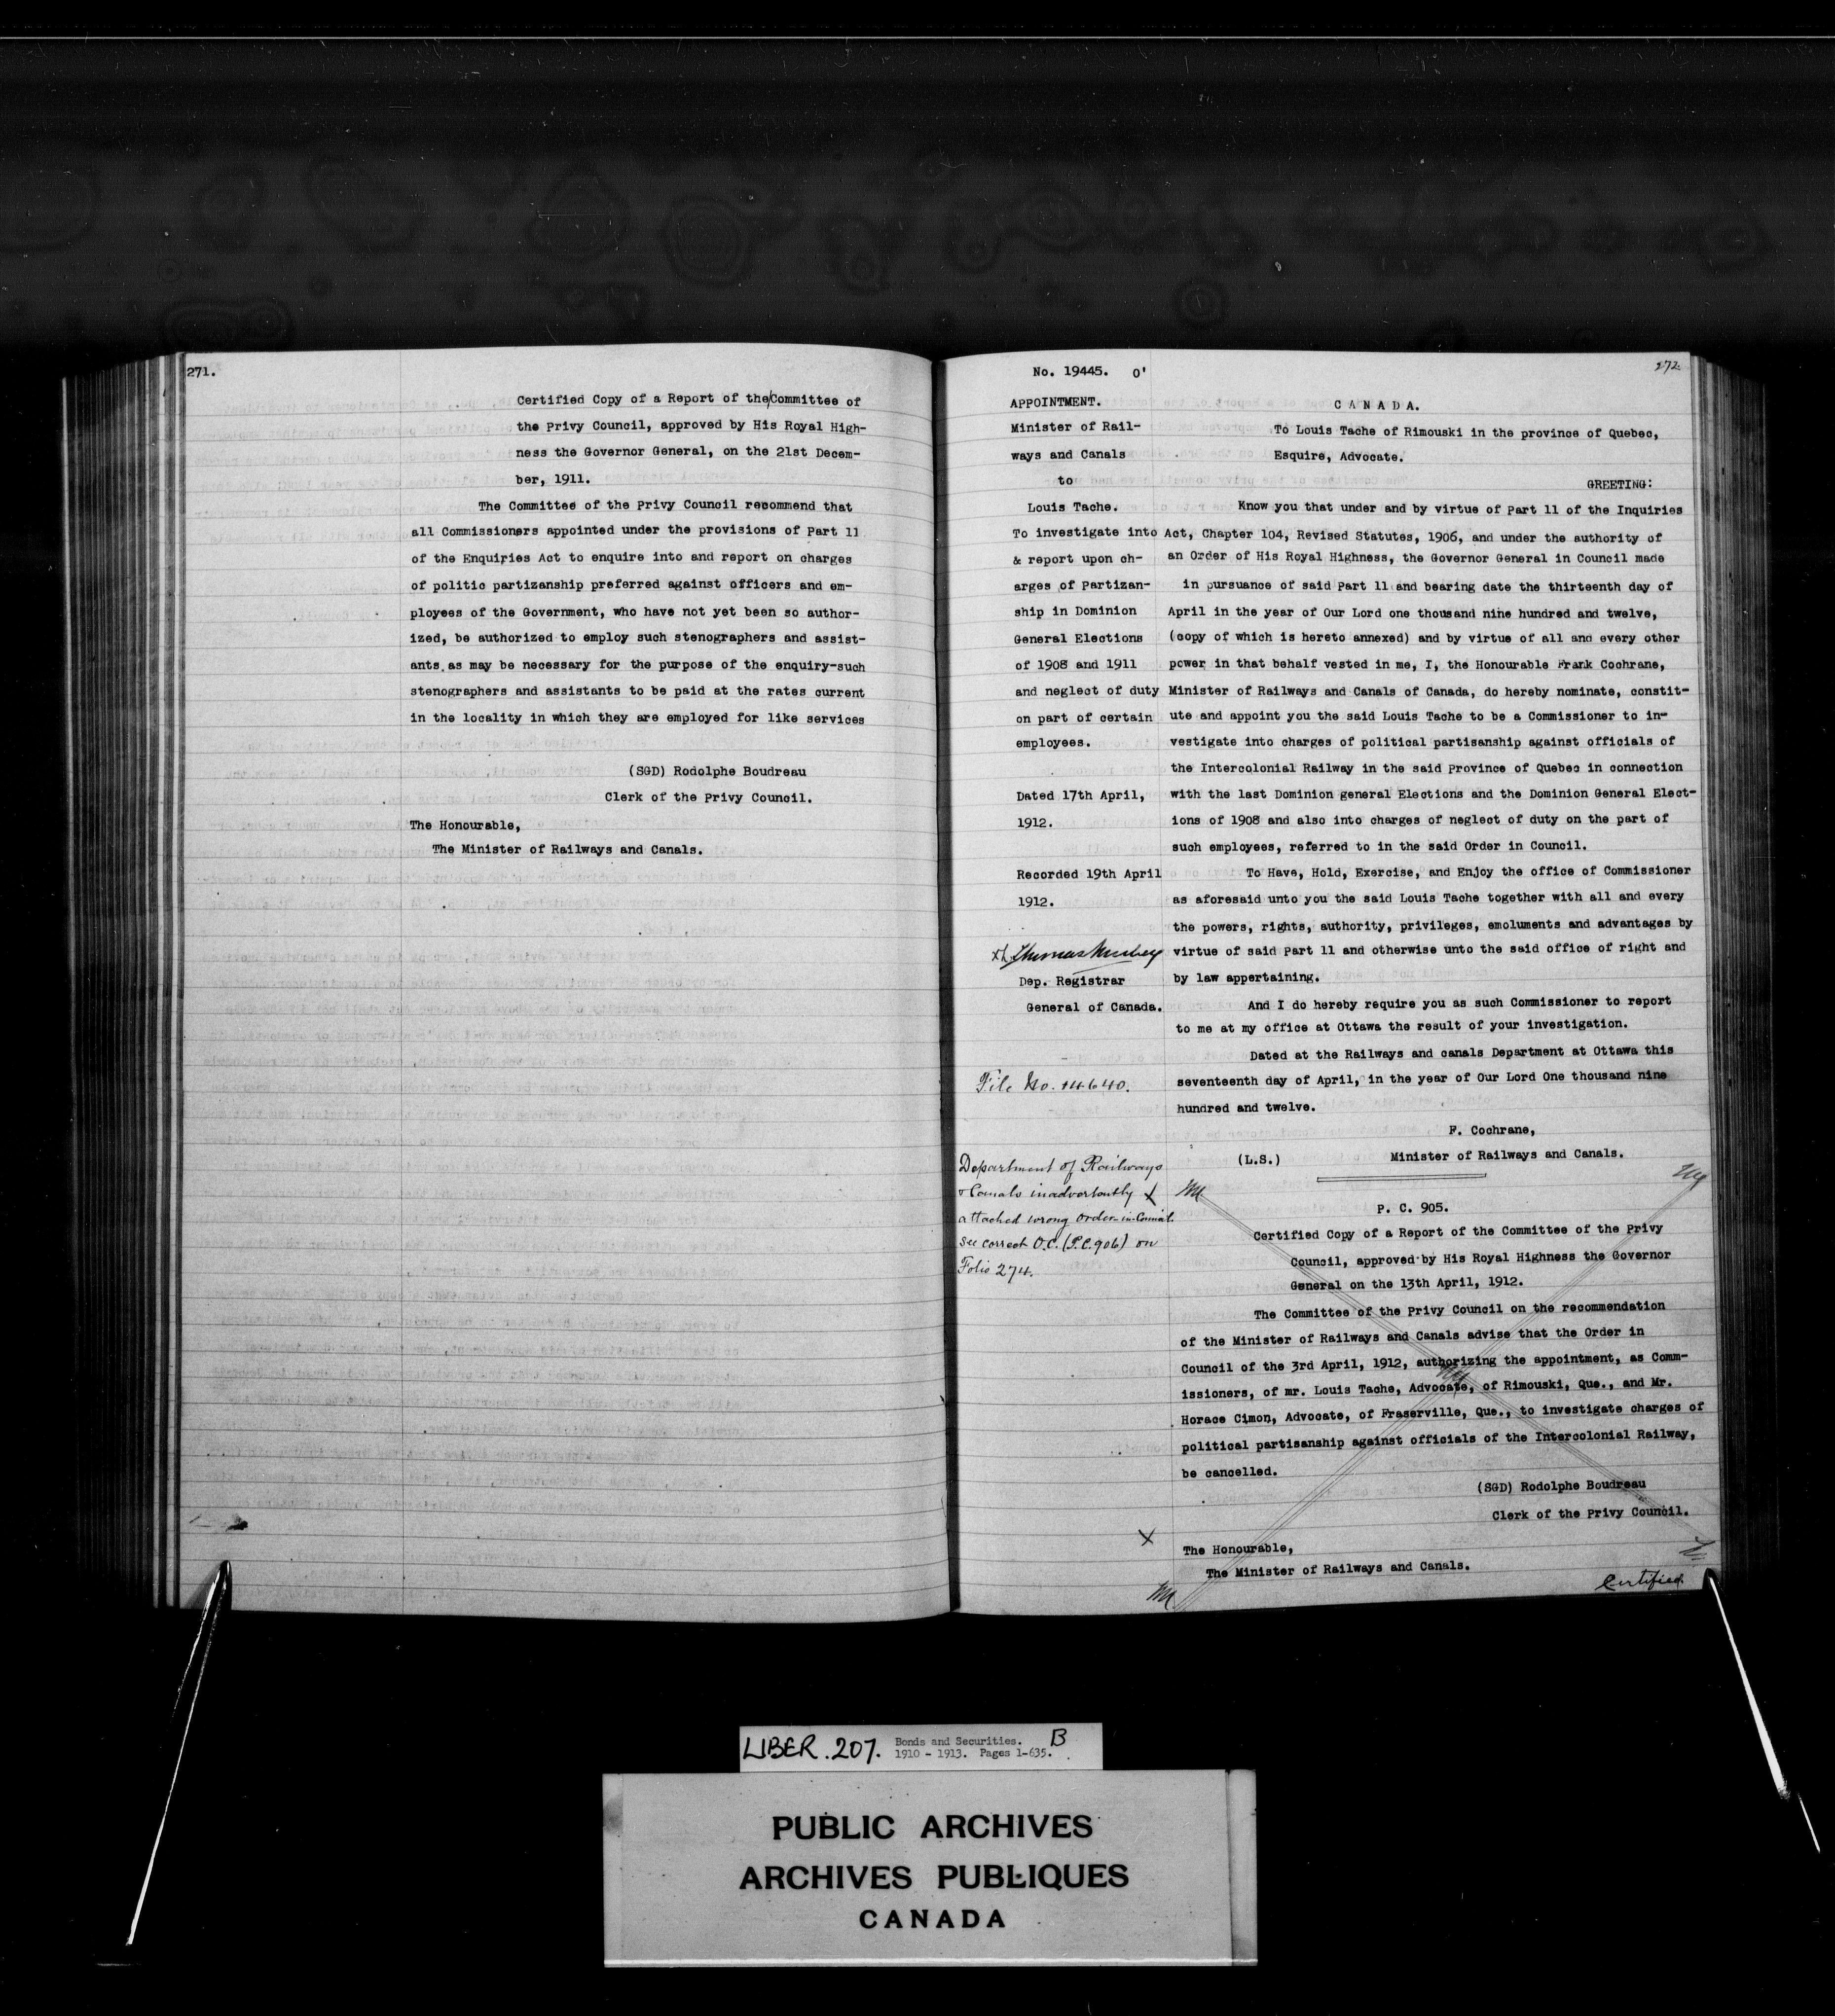 271.
Certified Copy of a Report of the/Committee of
the Privy Council, approved by His Royal High-
ness the Governor General, on the 21st Decem-
ber, 1911.
The Committee of the Privy Council recommend that
all Commissioners appointed under the provisions of Part 11
of the Enquiries Act to enquire into and report on charges
of politic partizanship preferred against officers and em-
ployees of the Government, who have not yet been so author-
ized, be authorized to employ such stenographers and assist-
ants as may be necessary for the purpose of the enquiry-such
stenographers and assistants to be paid at the rates current
in the locality in which they are employed for like services
(SGD) Rodolphe Boudreau
Clerk of the Privy Council.
The Honourable,
The Minister of Railways and Canals.
No. 19445. O'
272.
APPOINTMENT.
Minister of Rail-
ways and Canals
to
Louis Tache.
To investigate into
& report upon ch-
arges of Partizan-
ship in Dominion
General Elections
of 1908 and 1911
and neglect of duty
on part of certain
employees.
Dated 17th April,
1912.
Recorded 19th April
1912.
Thomas Mulvey
Dep. Registrar
General of Canada.
File No. 14640.
Department of Railways
& Canals inadvertently X
attached wrong Order-in-Council.
See correct O.C. (P.C. 906) on
Folio 274.
CANADA.
To Louis Tache of Rimouski in the province of Quebec,
Esquire, Advocate.
GREETING:
Know you that under and by virtue of Part 11 of the Inquiries
Act, Chapter 104, Revised Statutes, 1906, and under the authority of
an Order of His Royal Highness, the Governor General in Council made
in pursuance of said Part 11 and bearing date the thirteenth day of
April in the year of Our Lord one thousand nine hundred and twelve,
(copy of which is hereto annexed) and by virtue of all and every other
power in that behalf vested in me, I, the Honourable Frank Cochrane,
Minister of Railways and Canals of Canada, do hereby nominate, constit-
ute and appoint you the said Louis Tache to be a Commissioner to in-
vestigate into charges of political partisanship against officials of
the Intercolonial Railway in the said Province of Quebec in connection
with the last Dominion general Elections and the Dominion General Elect-
ions of 1908 and also into charges of neglect of duty on the part of
such employees, referred to in the said Order in Council.
To Have, Hold, Exercise, and Enjoy the office of Commissioner
as aforesaid unto you the said Louis Tache together with all and every
the powers, rights, authority, privileges, emoluments and advantages by
virtue of said Part 11 and otherwise unto the said office of right and
by law appertaining.
And I do hereby require you as such Commissioner to report
to me at my office at Ottawa the result of your investigation.
Dated at the Railways and canals Department at Ottawa this
seventeenth day of April, in the year of Our Lord One thousand nine
hundred and twelve.
F. Cochrane,
(L.S.) Minister of Railways and Canals.
P. C. 905.
Certified Copy of a Report of the Committee of the Privy
Council, approved by His Royal Highness the Governor
General on the 13th April, 1912.
The Committee of the Privy Council on the recommendation
of the Minister of Railways and Canals advise that the Order in
Council of the 3rd April, 1912, authorizing the appointment, as Comm-
issioners, of mr. Louis Tache, Advocate, of Rimouski, Que., and Mr.
Horace Cimon, Advocate, of Fraserville, Que., to investigate charges of
political partisanship against officials of the Intercolonial Railway,
be cancelled.
(SGD) Rodolphe Boudreau
Clerk of the Privy Council.
X
The Honourable,
The Minister of Railways and Canals.
Certified
LIBER. 207. Bonds and Securities. B
1910 - 1913. Pages 1-635.
PUBLIC ARCHIVES
ARCHIVES PUBLIQUES
CANADA